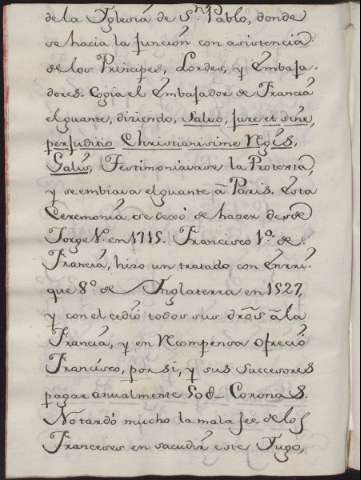 de la Yglesia de Sn. Pablo, donde
se hacia la funcion con asistencia
de los Principes, Lordes, y Embaja-
dores. Cogia el Embajador de Francia
el guante, diziendo, Salvo, jure et sine,
perjuditio Christianisime Regis,
Salvo, Testimoniavase la Protexta,
y se embiava el guante â Paris. Esta
Ceremonia se dexó de hazer desde
Jorge 1º. en 1715. Francisco 1º. de
Francia, hizo un tratado con Enrri-
que 8º. de Ynglaterra en 1527,
y con el cedió todos sus dros. â la
Francia, y en Recompensa ofreció
Francisco, por si, y sus Successores
pagar anualmente 50& Coronas.
No tardó mucho la mala fee de los
Franceses en sacudir este Yugo,